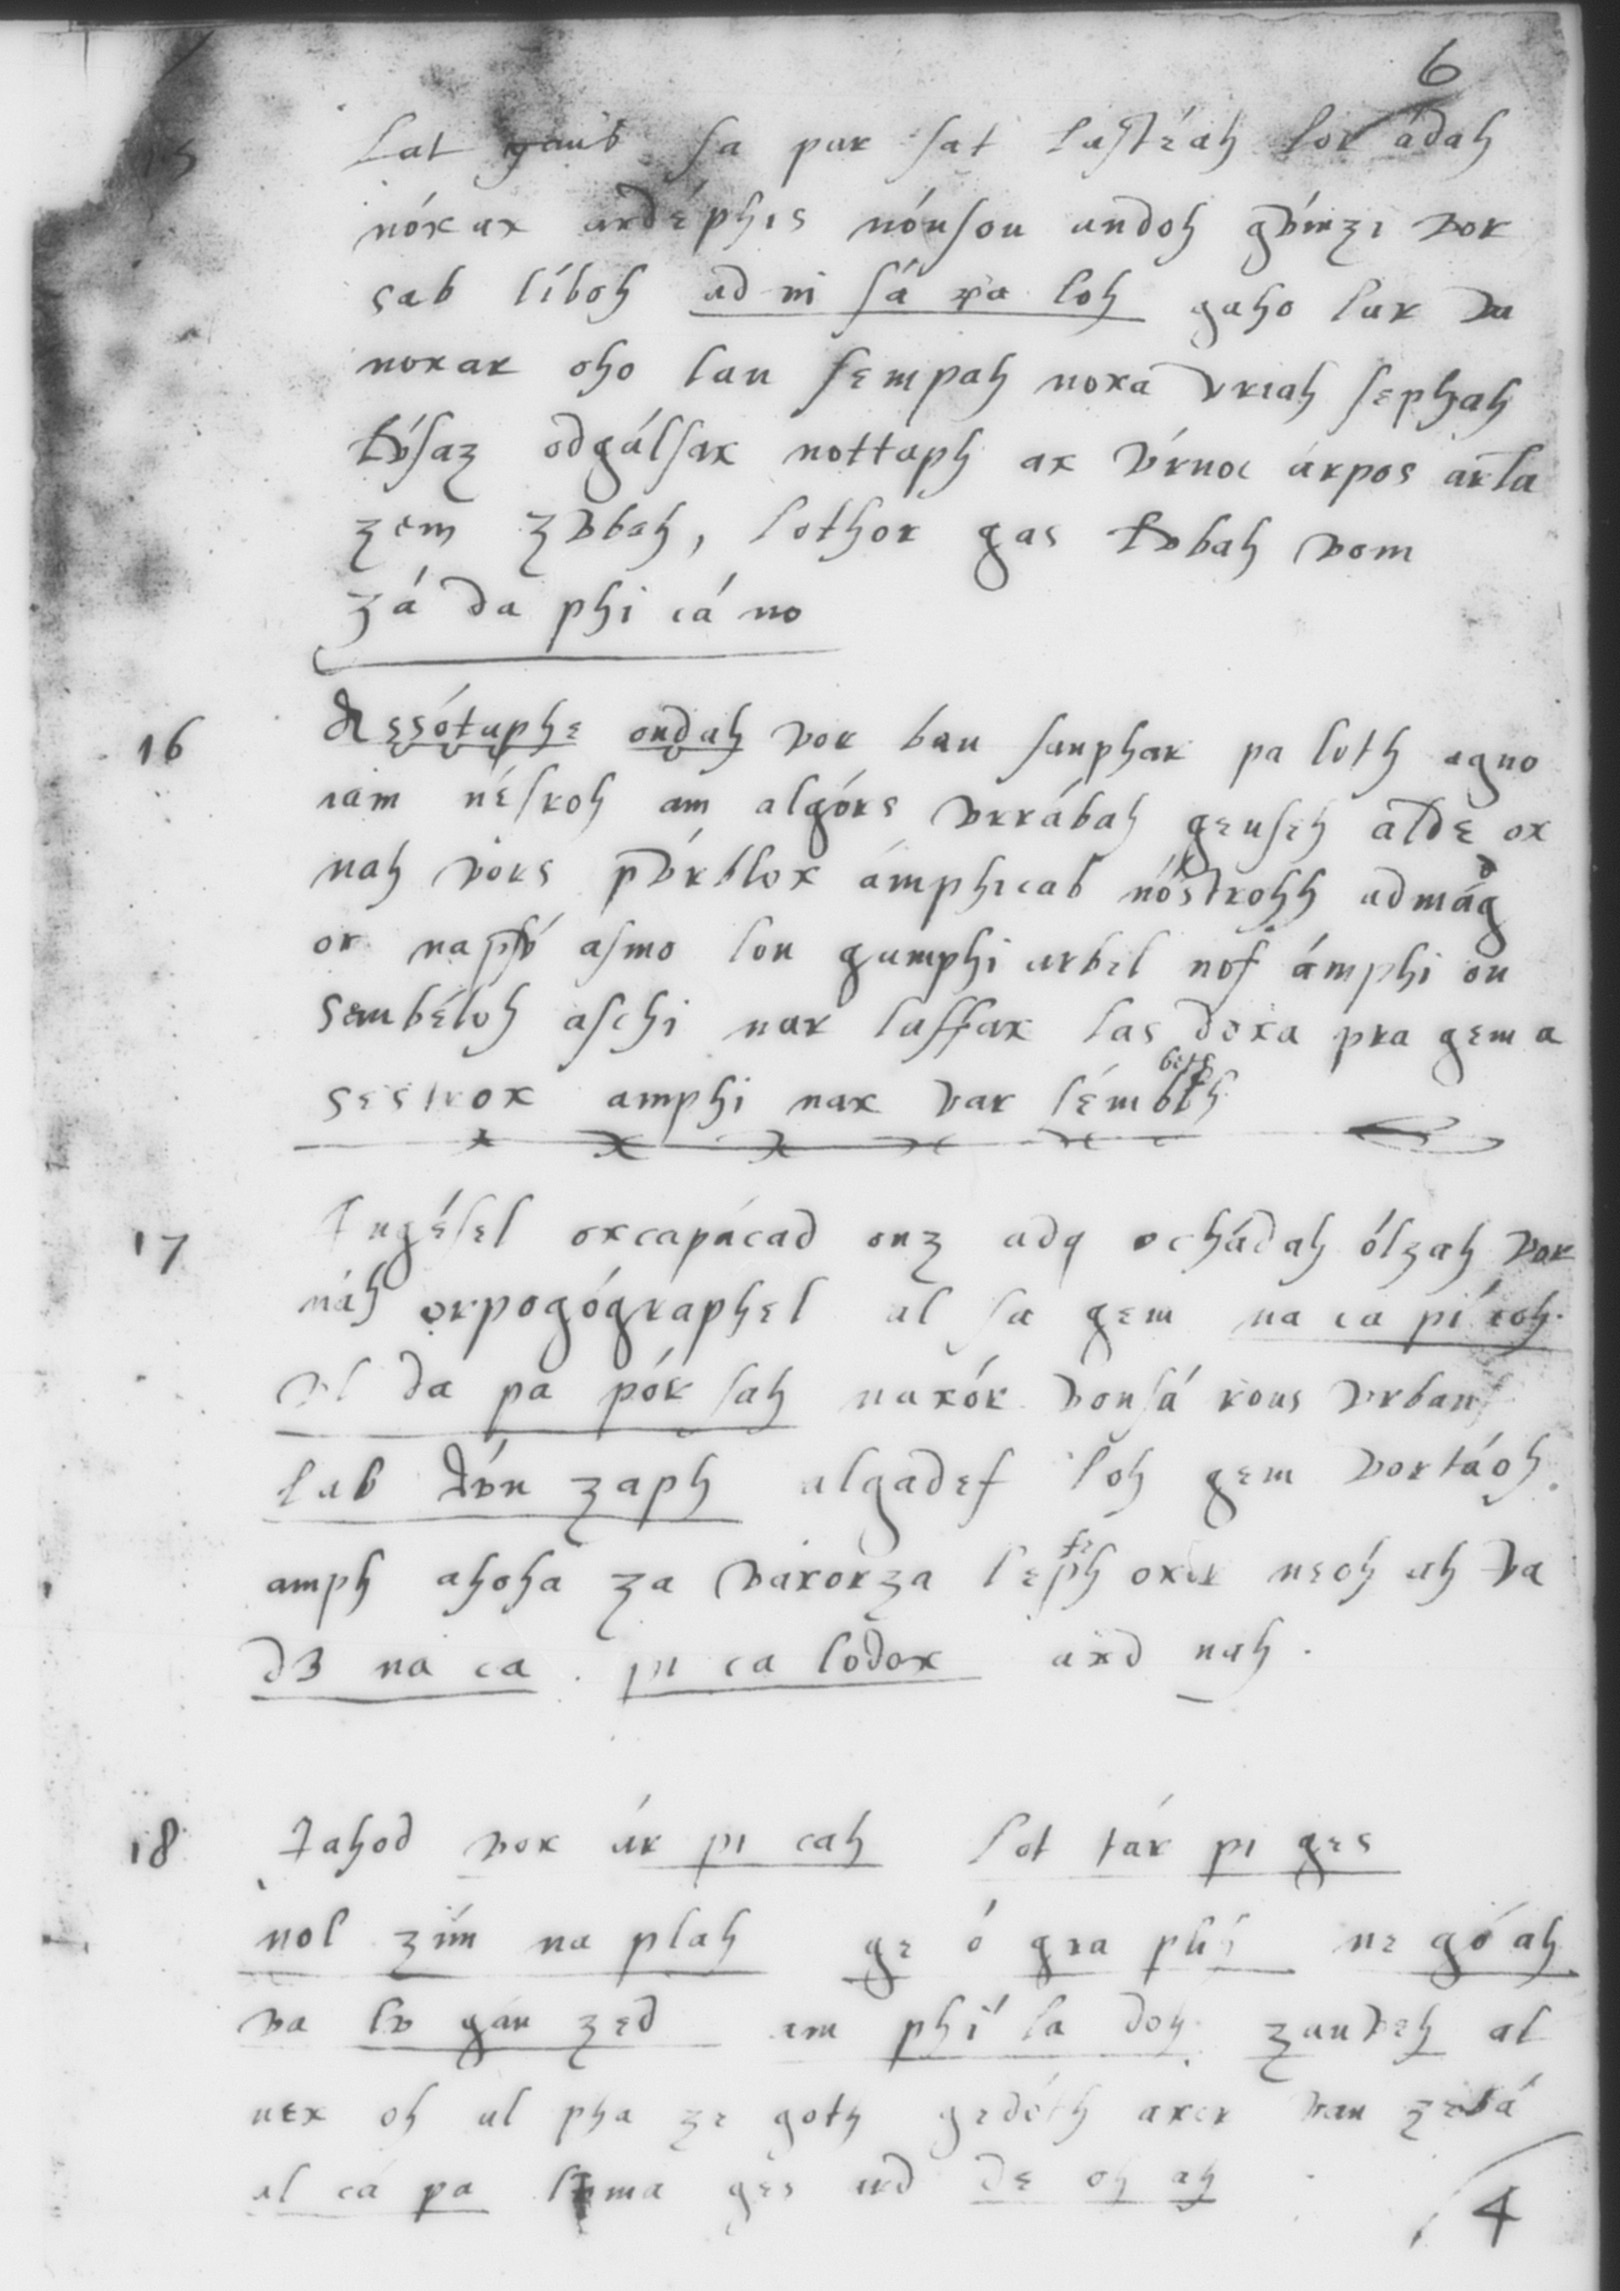 6
15 Lat gaub sa par sat lastéah lor ádah
nóxax ardéphis nónson andoh gvinzi vor
sab líboh ad ni sá va loh gaho lar va
noxar oho lan sempah noxa vriah sephah
lvsaz odgálsax nottaph ax vrnoc árpos arta
zem zvbah, lothor gas lvbah vom
zá da phi cá no
16 Resótaphe ondah vor ban sanphar pa loth agno
iam nésroh am algórs vrrábah genseh alde ox
nah vors pvrblox ámphicab nóstrohh admág
or napsv asmo lon gamphi arbel nof ámphi on
sembéloh aschi nar laffax las doxa pra gem a
sestrox amphi nax var lémblh
17 Ingésel oxcapácad onz adq ochádah ólzah vor
náh orpogógraphel al sa gem na ca pí coh.
vl da pa pór sah naxór vonsá rons vrban
lab dvn zaph algadef loh gem vortáoh.
amph ahoha za vaxorza leph oxor neoh ah va
d3 na ca. pi ca lodox axd nah.
18 Iahod vox ár pi cah lot tár pi ges
nol zim na plah ge ó gra plih ne gó ah
va lv gan zed am phí la doh zanveh al
nex oh al pha ze goth gedóth axor van zebá
al cá pa lvma ges ard de oh ah
4